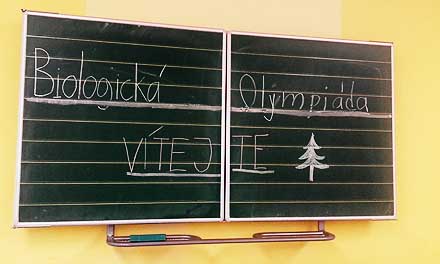 Biologická Olympiáda
VÍTEJTE